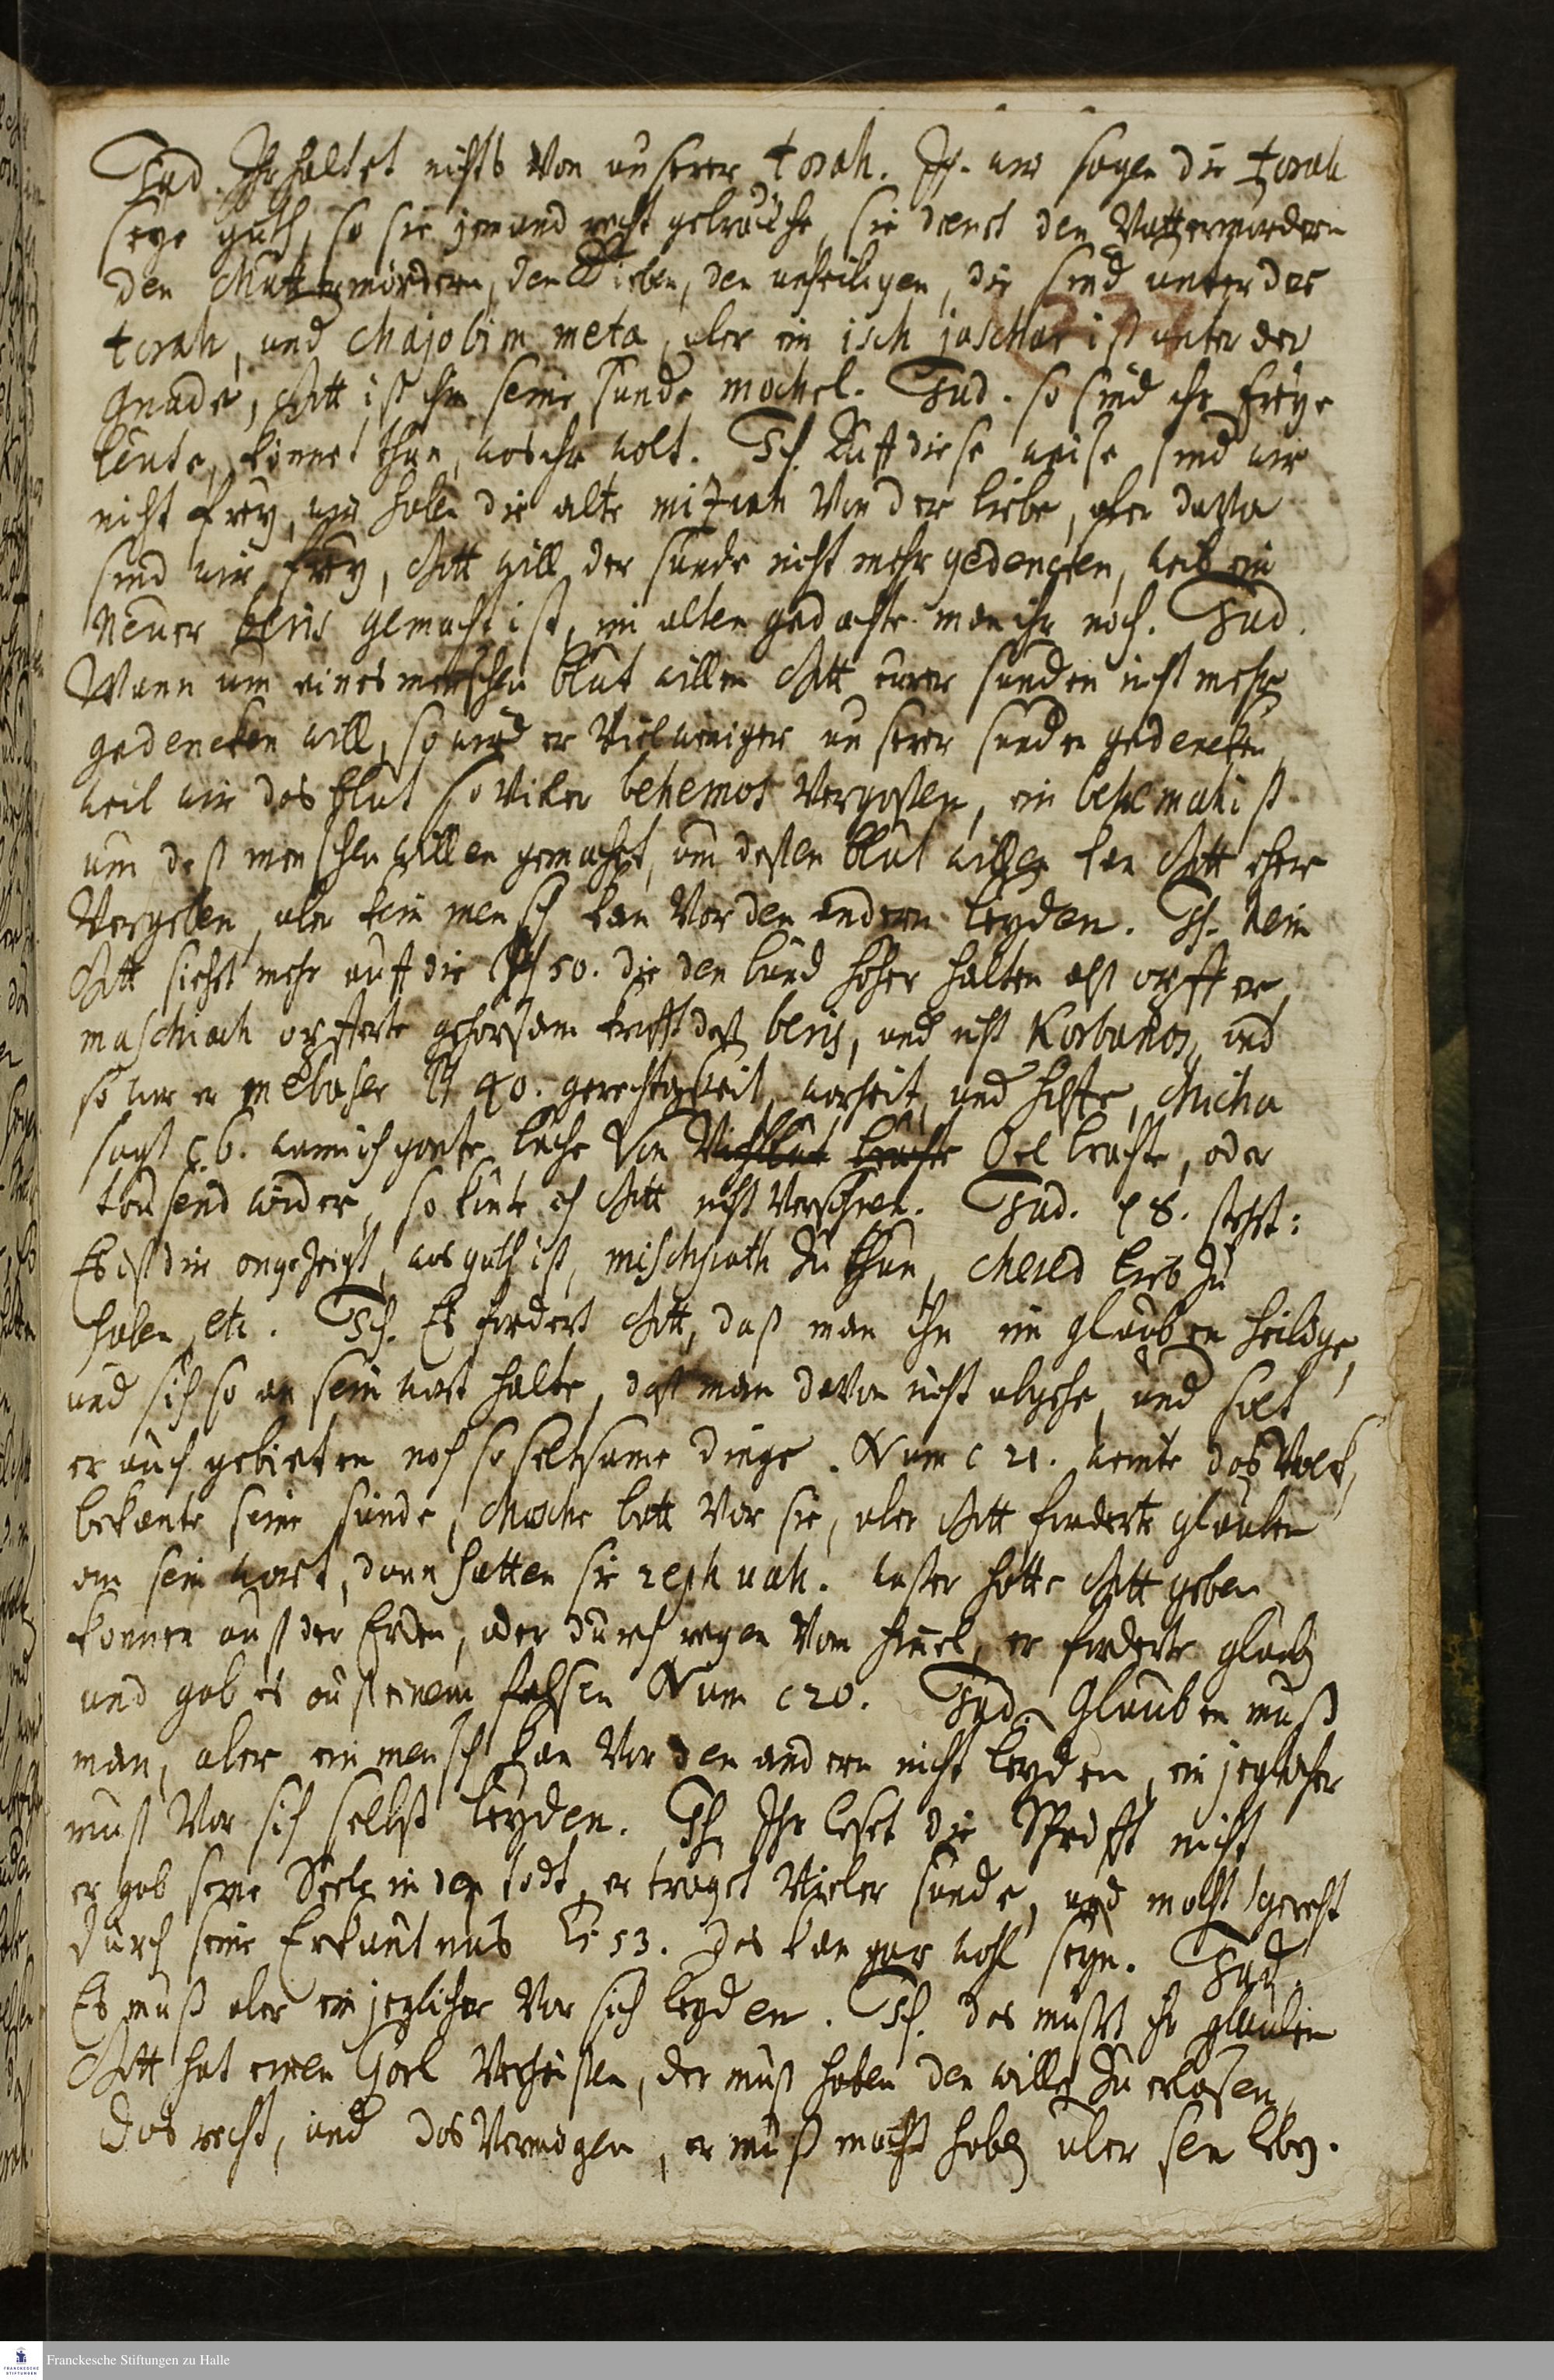 Jud. Ihr haltet nichts von unserer torah. Ich. wir sagen die torah
seye guth, so sie jemand recht gebrauche, sie dienet den Vattermördern
den Muttermördern, den Dieben, den unheiligen, die sind unter der
torah, und chajobim meta, aber ein isch jaschar ist unter der
gnade, Gott ist ihm seine sünde mochel. Jud. so sind ihr freye
leute, könnet thun, was ihr wolt. Ich. Auff diese weise sind wir
nicht frey, wir haben die alte mizwah von der liebe, aber da
sind wir frey, Gott will der sünde nicht mehr gedencken, weil ein
neuer beris gemacht ist, im alten gedachte man ihr noch. Jud.
Wann um eines menschen blut willen Gott eurer sünden nicht mehr
gedencken will, so wird er viel weniger unserer sünden gedencken
weil wir das blut so vieler behemot vergossen, ein behemah ist
um deß menschen willen gemacht, um dessen blut willen kan Gott eher
vergeben, aber kein mensch kan vor den andern leyden. Ich. Nein
Gott siehet mehr auff die Ps 50. die den bund höher halten alß opffer,
maschiach opfferte gehorsam krafft deß beris, und nicht Korbanos, und
so war er mebasser Ps 40. gerechtigkeit, warheit, und hilffe, Micha
sagt c. 6. wann ich gantze bäche von Viehblut brächte Oel brächte, oder
tausend widder, so könte ich Gott nicht versöhnen. Jud. v 8. stehet:
Es ist dir angezeigt, was guth ist, mischpath zu thun, chesed lieb zu
haben etc. Ich. Es fordert Gott, daß man ihn im glauben heilige,
und sich so an sein wort halte, daß man davon nicht abgehe, und solt
er auch gebieten noch so seltsame dinge. Num c 21. weinte das Volck,
bekante seine sünde, Mosche batt vor sie, aber Gott forderte glauben
an sein wort, dann hatten sie rephuah. wasser hätte Gott geben
können auß der Erden, oder durch regen vom himel, er forderte glauben
und gab es auß einem felsen Num c 20. Jud. Glauben muß
man, aber ein mensch kan vor den andern nicht leyden, ein jeglicher
muß vor sich selbst leyden. Ich. Ihr leset die Schrifft nicht
er gab seine Seele in den todt, er träget vieler sünde, und macht gerecht
durch seine Erkäntnus Es 53. Das kan gar wohl seyn. Jud.
Es muß aber ein jeglicher vor sich leyden. Ich. das müßt ihr glauben
Gott hat einen Goel verheissen, der muß haben den willen zu erlösen,
das recht, und das Vermögen, er muß macht haben über sein leben.
Franckesche Stiftungen zu Halle